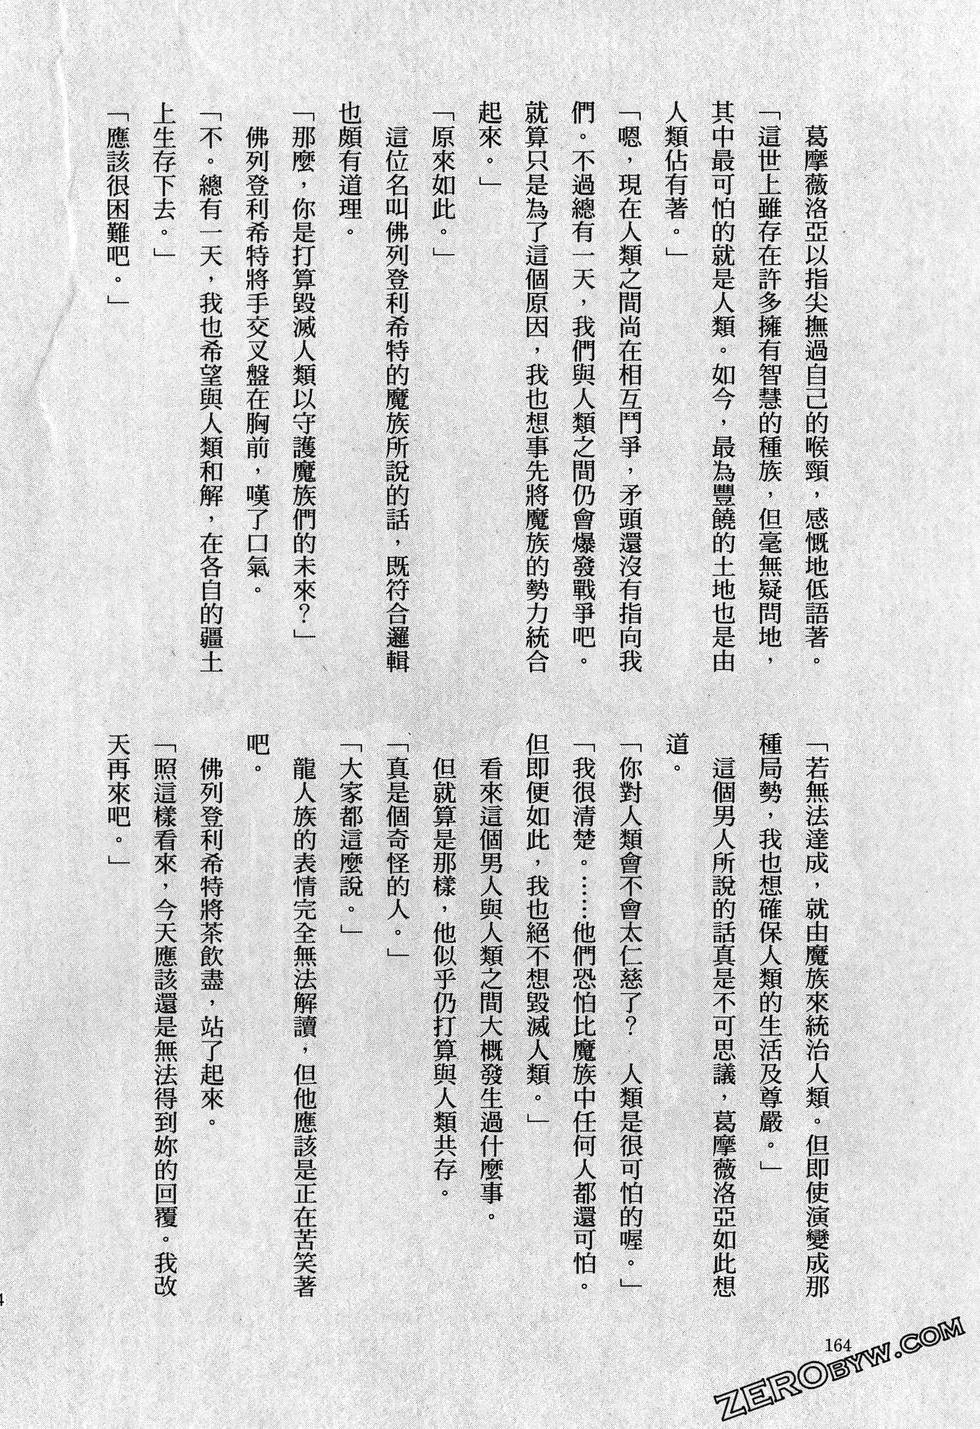 葛摩薇洛亞以指尖撫過自己的喉頸，感慨地低語著。
「這世上雖存在許多擁有智慧的種族，但毫無疑問地，
其中最可怕的就是人類。如今，最為豐饒的土地也是由
人類佔有著。」
「嗯，現在人類之間尚在相互鬥爭，矛頭還沒有指向我
們。不過總有一天，我們與人類之間仍會爆發戰爭吧。
就算只是為了這個原因，我也想事先將魔族的勢力統合
起來。」
「原來如此。」
這位名叫佛列登利希特的魔族所說的話，既符合邏輯
也頗有道理。
「那麼，你是打算毀滅人類以守護魔族們的未來？」
佛列登利希特將手交叉盤在胸前，嘆了口氣。
「不。總有一天，我也希望與人類和解，在各自的疆土
上生存下去。」
「應該很困難吧。」
「若無法達成，就由魔族來統治人類。但即使演變成那
種局勢，我也想確保人類的生活及尊嚴。」
這個男人所說的話真是不可思議，葛摩薇洛亞如此想
道。
「你對人類會不會太仁慈了？　人類是很可怕的喔。」
「我很清楚。……他們恐怕比魔族中任何人都還可怕。
但即便如此，我也絕不想毀滅人類。」
看來這個男人與人類之間大概發生過什麼事。
但就算是那樣，他似乎仍打算與人類共存。
「真是個奇怪的人。」
「大家都這麼說。」
龍人族的表情完全無法解讀，但他應該是正在苦笑著
吧。
佛列登利希特將茶飲盡，站了起來。
「照這樣看來，今天應該還是無法得到妳的回覆。我改
天再來吧。」
164
4
ZEROBYW.COM